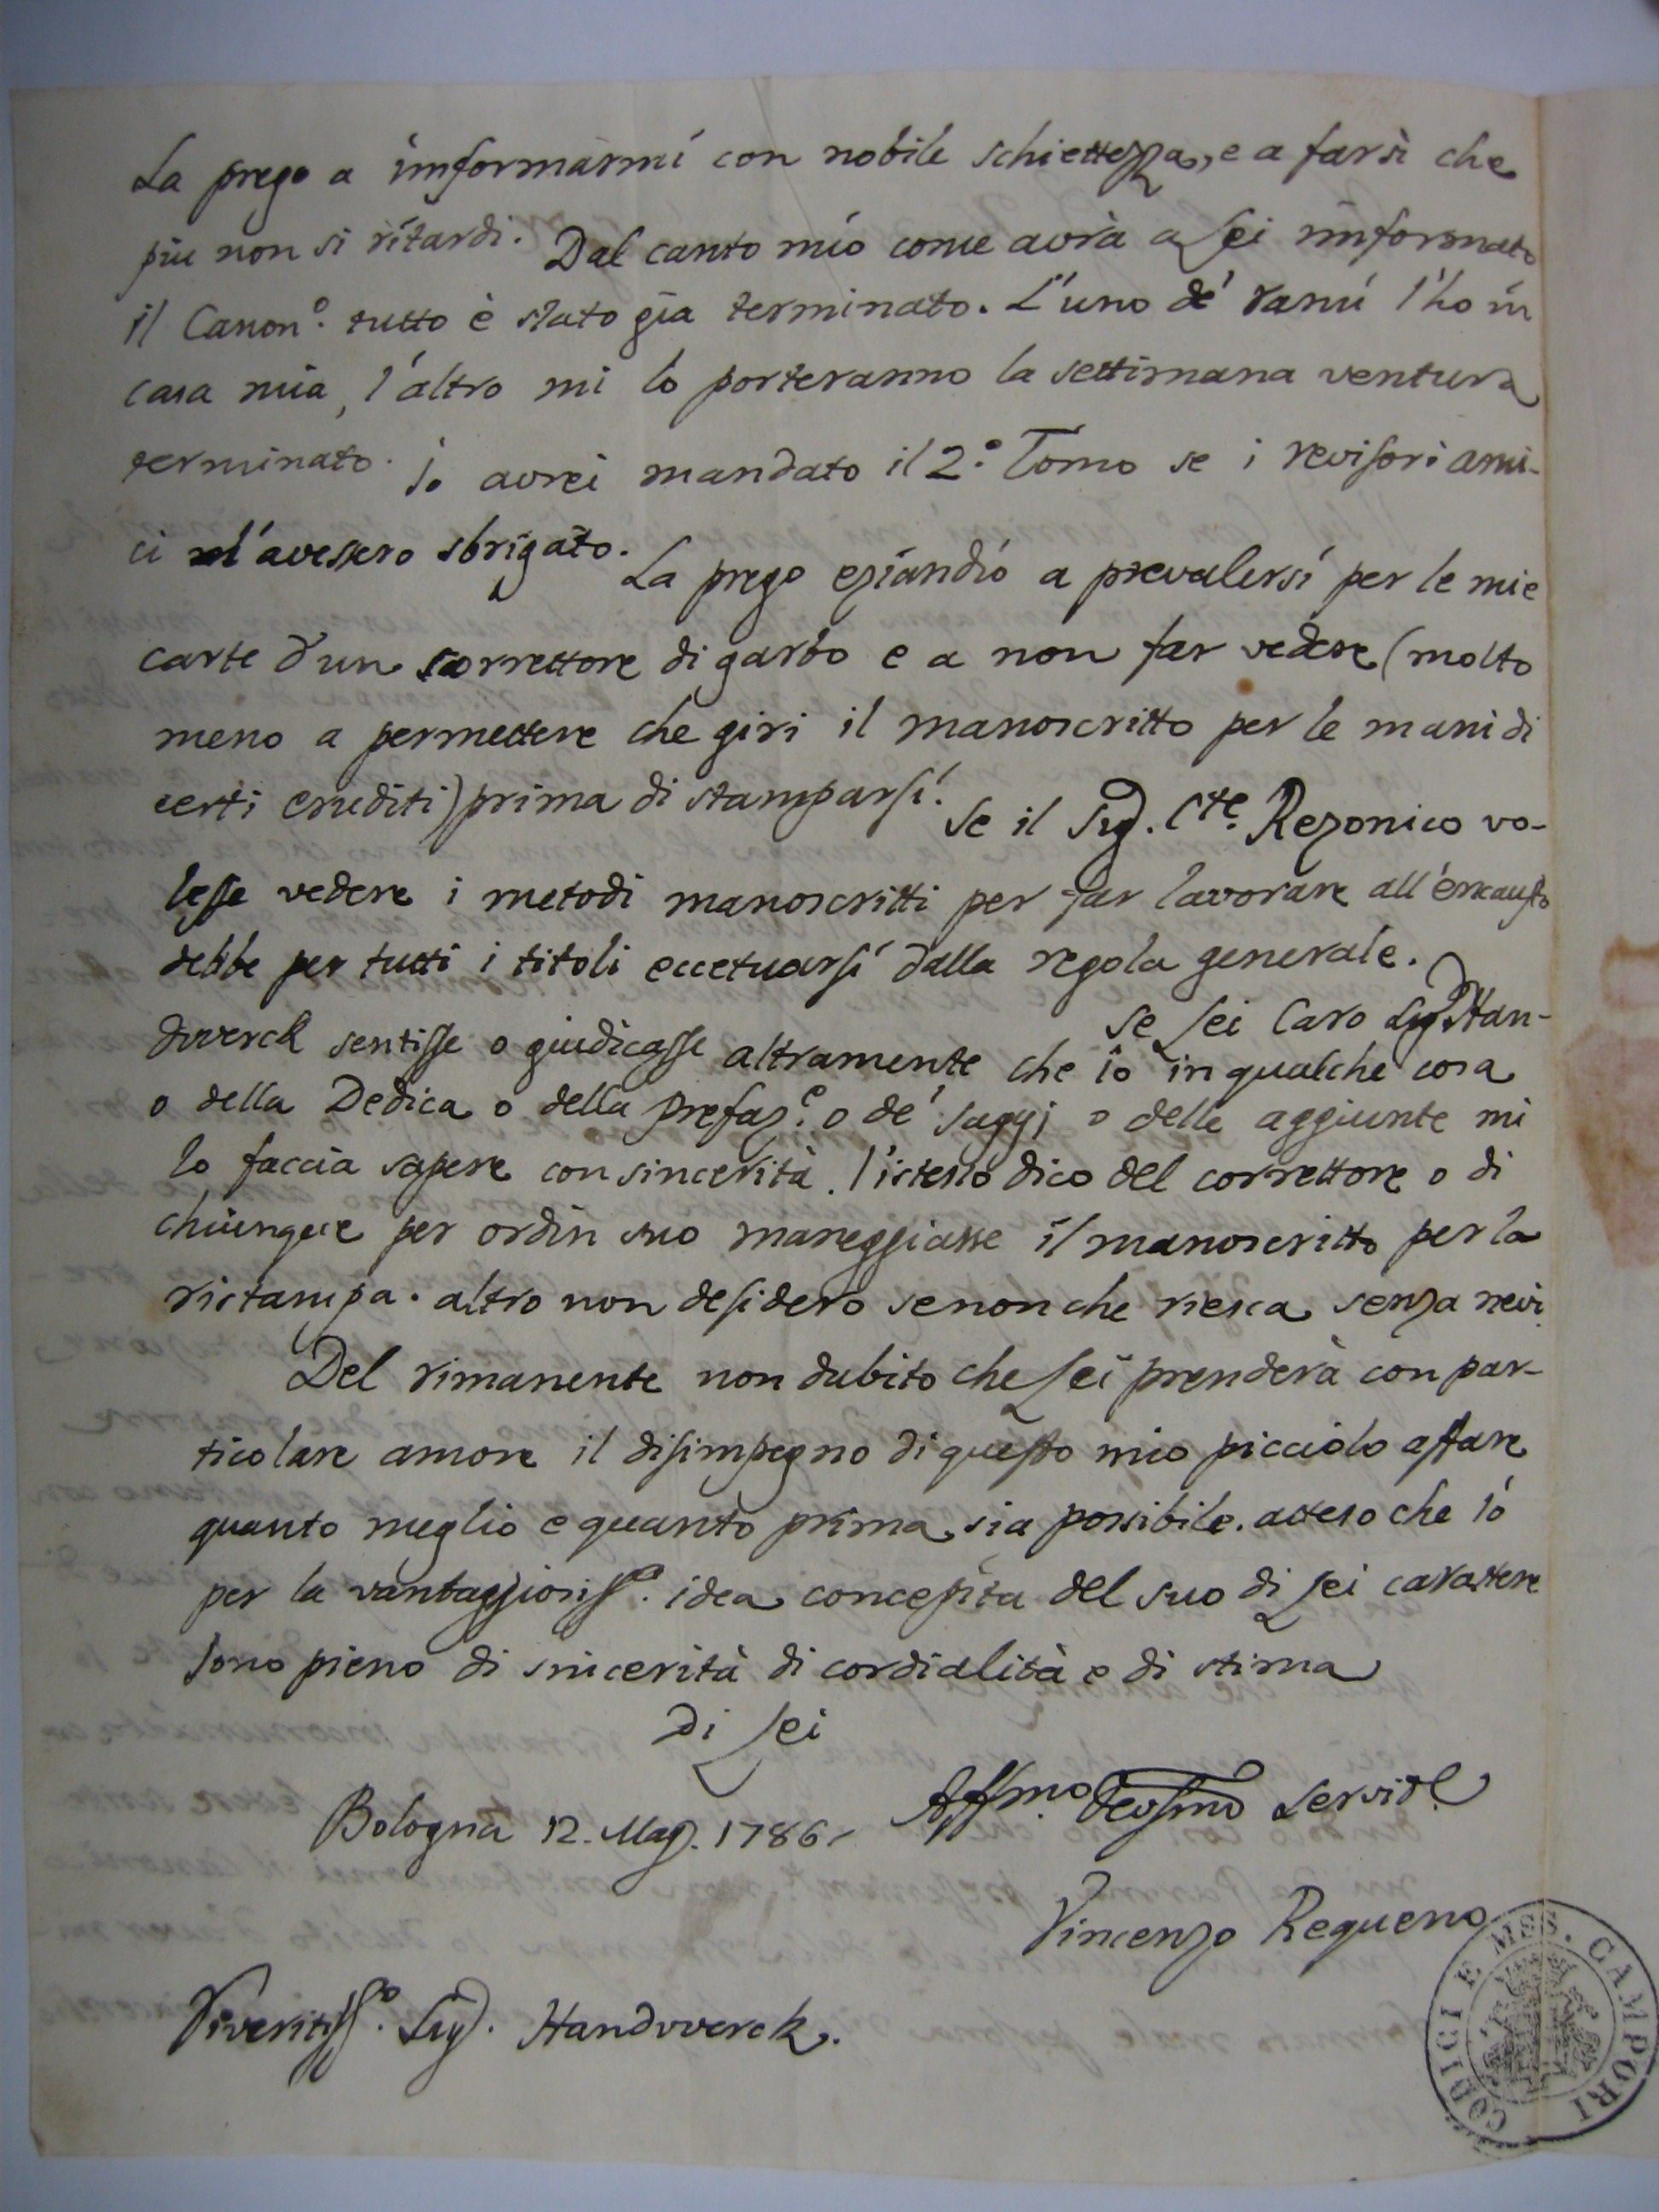 La prego a imformarmi con nobile schiettezza, e a farsì che
piu non si ritardi. Dal canto mio come avrà a Lei imformato
il Canon.º tutto è stato gia terminato. L'uno de' rami l'ho in
casa mia, l'altro mi lo porteranno la settimana ventura
terminato. Io avrei mandato il 2.º Tomo se i revisori ami-
ci l'avessero sbrigato. La prego eziandió a prevalersi per le mie
carte d'un correttore di garbo e a non far vedere (molto
meno a permettere che giri il manoscritto per le mani di
certi eruditi) prima di stamparsi. Se il Sig. Cte. Rezonico vo-
lesse vedere i metodi manoscritti per far lavorare all'encausto
debbe per tutti i titoli eccetuarsi dalla regola generale.
Se Lei Caro Sig. Han-
dwerck sentisse o giudicasse altramente che io in qualche cosa
o della Dedica o della prefaz.e o de' saggj o delle aggiunte mi
lo faccia sapere con sincerità. l'istesso dico del correttore o di
chiunque per ordin suo maneggiasse il manoscritto per la
ristampa. altro non desidero senonche riesca senza nevi.
Del rimanente non dubito che Lei prenderà con par-
ticolare amore il disimpegno di questo mio picciolo affare
quanto meglio e quanto prima sia possibile. atteso che io
per la vantaggiosiss.a idea concepita del suo di Lei carattere
sono pieno di sincerità di cordialità e di stima
Di Lei
Bologna 12. Mag. 1786. Affmo. Devsmo Servid.e
Vincenzo Requeno
Riveritiss.o Sig. Handwerck.
CODICI E MSS. CAMPORI